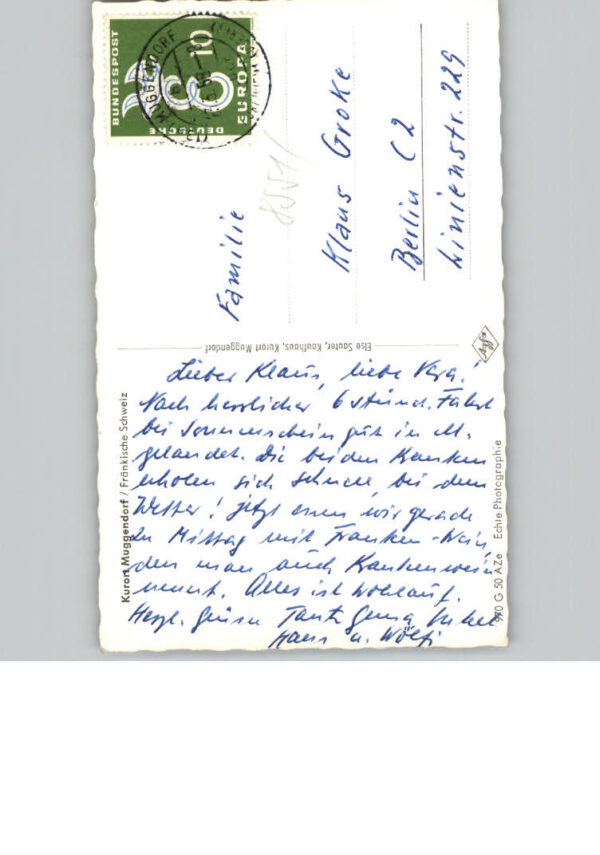 DEUTSCHE
BUNDESPOST
10
EUROPA
MUGGENDORF
8551
Familie
Klaus Groke
Berlin C2
Linienstr. 229
Else Sauter, Kaufhaus, Kurort Muggendorf
Kurort Muggendorf / Fränkische Schweiz
970 G 50 AZe Echte Photographie
Lieber Klaus, liebe Vera!
Nach herrlicher 6 stünd. Fahrt
bei Sonnenschein gut in M.
gelandet. Die beiden Kranken
erholen sich schnell bei dem
Wetter! Jetzt essen wir gerade
zu Mittag mit Franken-Wein,
den man auch Krankenwein
nennt. Alles ist wohlauf.
Herzl. Grüsse Tante Onkel
Hans u. Wölfi